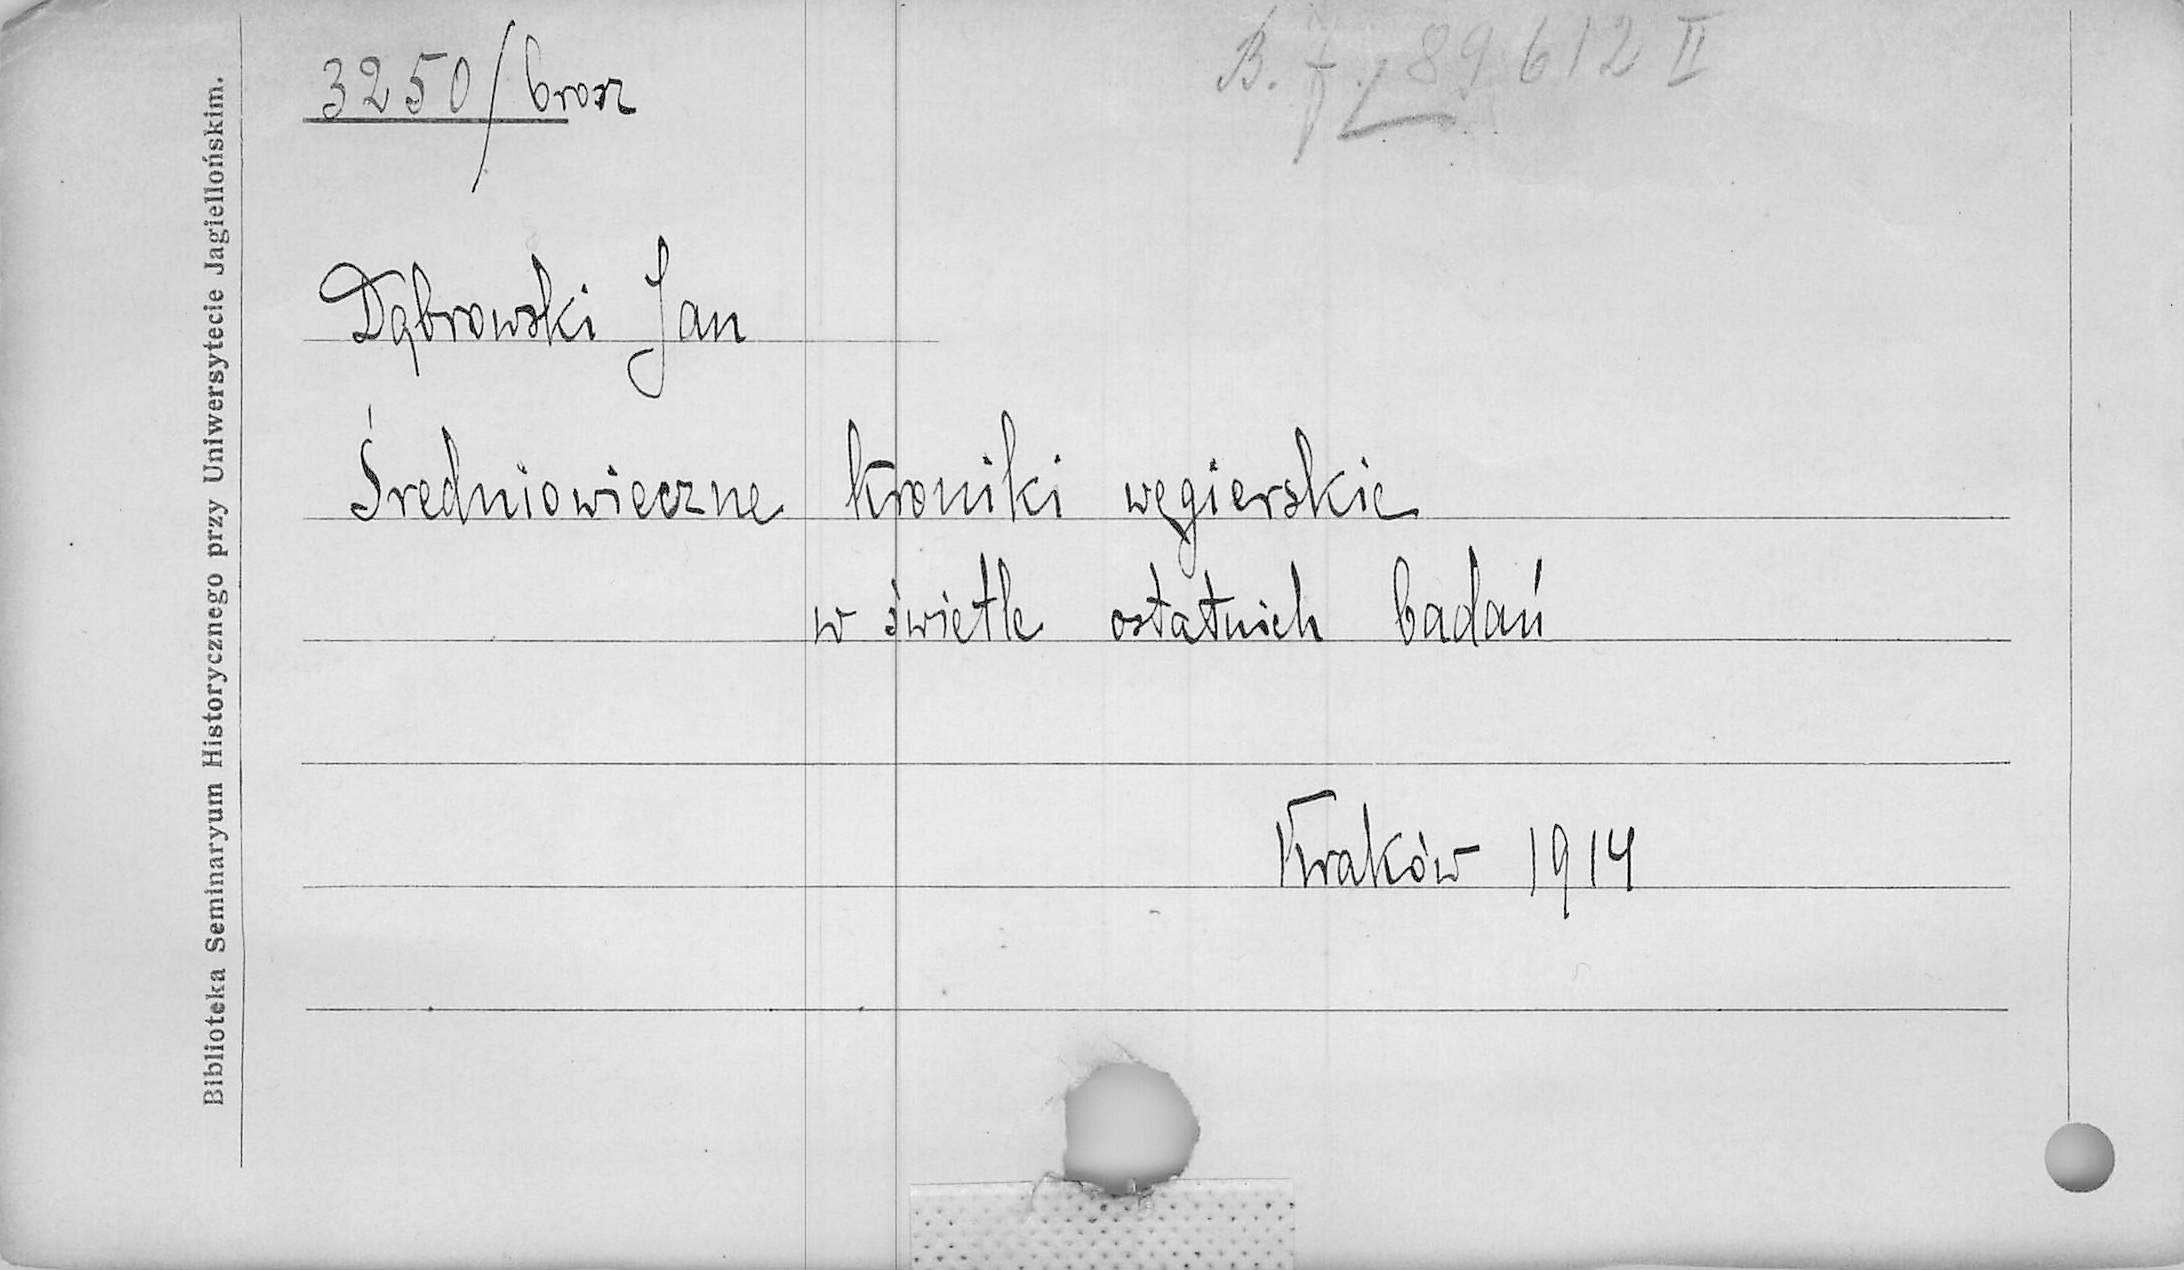 3250/brosz
B. f. 89612 II
Dąbrowski Jan
Średniowieczne kroniki węgierskie
w świetle ostatnich badań
Kraków 1914
Biblioteka Seminaryum Historycznego przy Uniwersytecie Jagiellońskim.